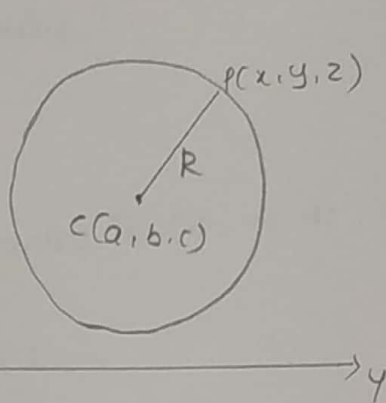 P(x,y,z)
R
C(a,b.c)
y